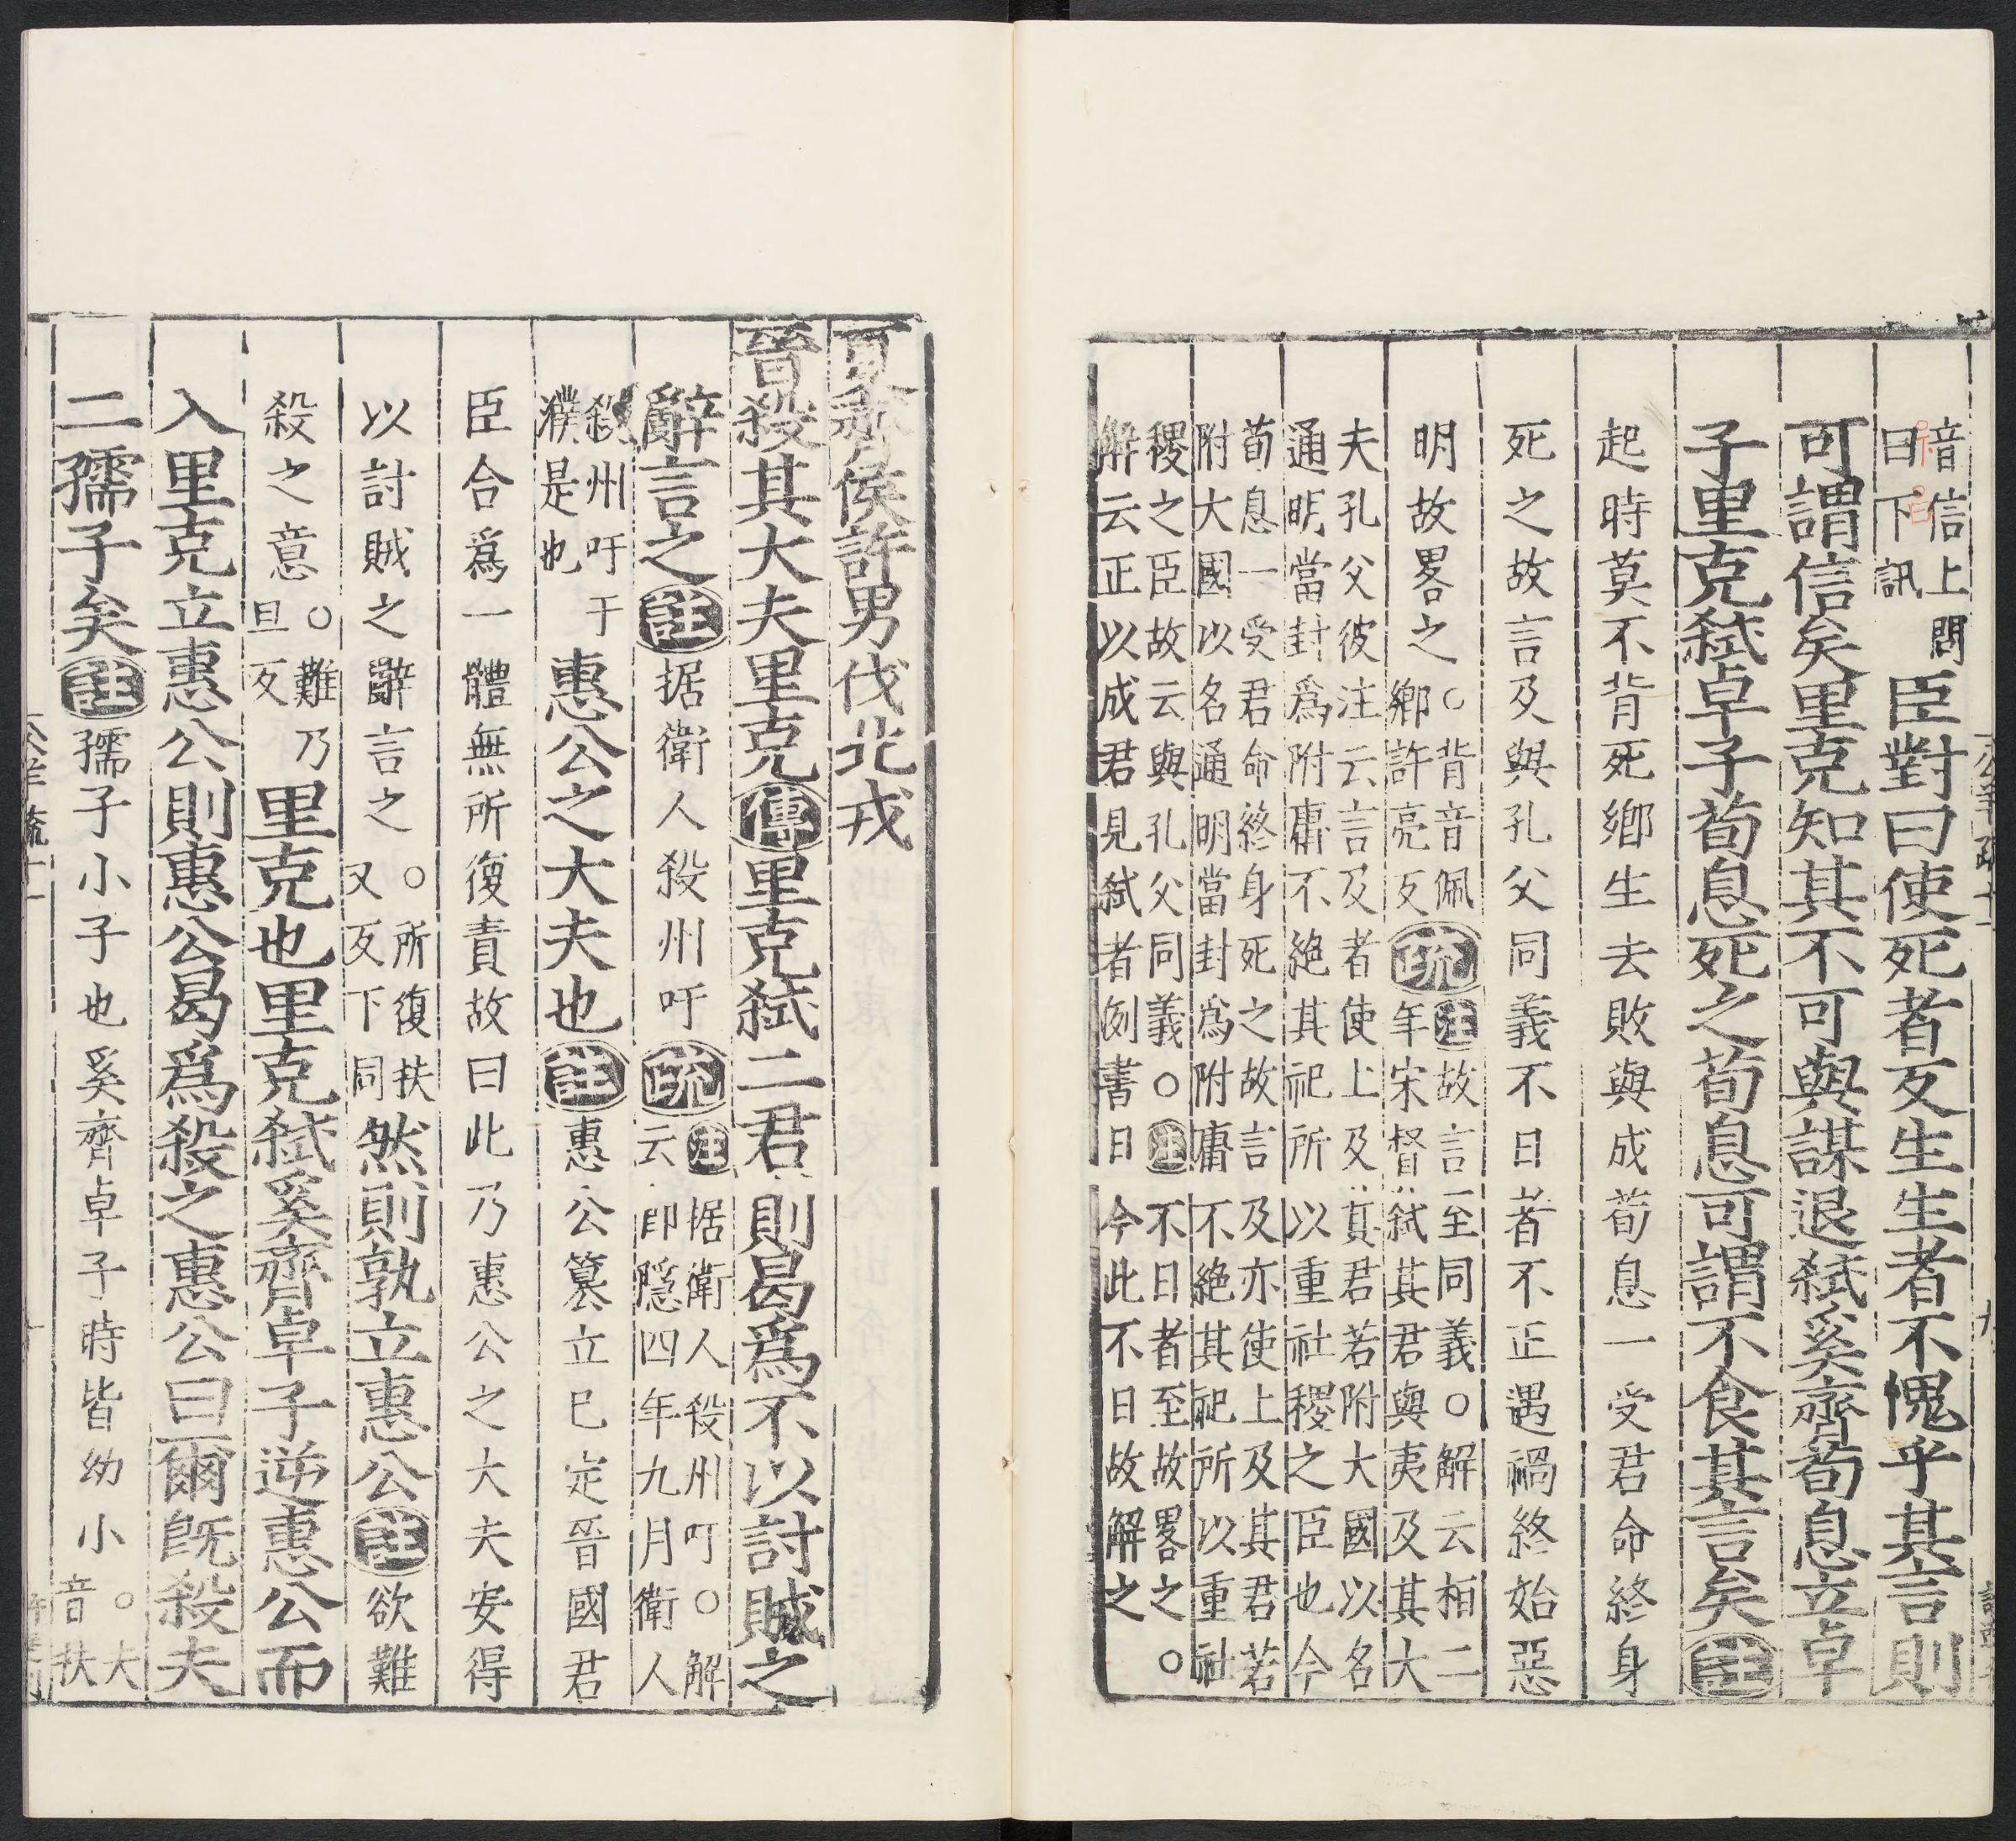 音信上問
曰下訊
臣對曰使死者反生生者不愧乎其言則
可謂信矣里克知其不可與謀退弑奚齊荀息立卓
子里克弑卓子荀息死之荀息可謂不食其言矣註
起時莫不背死鄉生去敗與成荀息一受君命終身
死之故言及與孔父同義不日者不正遇禍終始惡
明故畧之
○背音佩
鄉許亮反
疏
注故言至同義○解云桓二
年宋督弑其君與夷及其大
夫孔父彼注云言及者使上及其君若附大國以名
通明當封爲附庸不絶其祀所以重社稷之臣也今
荀息一受君命終身死之故言及亦使上及其君若
附大國以名通明當封爲附庸不絶其祀所以重社
稷之臣故云與孔父同義○注不日者至故畧之○
解云正以成君見弑者例書日今此不日故解之
夏齊侯許男伐北戎
晉殺其大夫里克傳里克弑二君則曷爲不以討賊之
辭言之註据衛人殺州吁疏
注据衛人殺州吁○解
云即隱四年九月衛人
殺州吁于
濮是也
惠公之大夫也註惠公簒立已定晉國君
臣合爲一體無所復責故曰此乃惠公之大夫安得
以討賊之辭言之
○所復扶
又反下同
然則孰立惠公註欲難
殺之意
○難乃
旦反
里克也里克弑奚齊卓子逆惠公而
入里克立惠公則惠公曷爲殺之惠公曰爾旣殺夫
二孺子矣註孺子小子也奚齊卓子時皆幼小
○夫
音扶